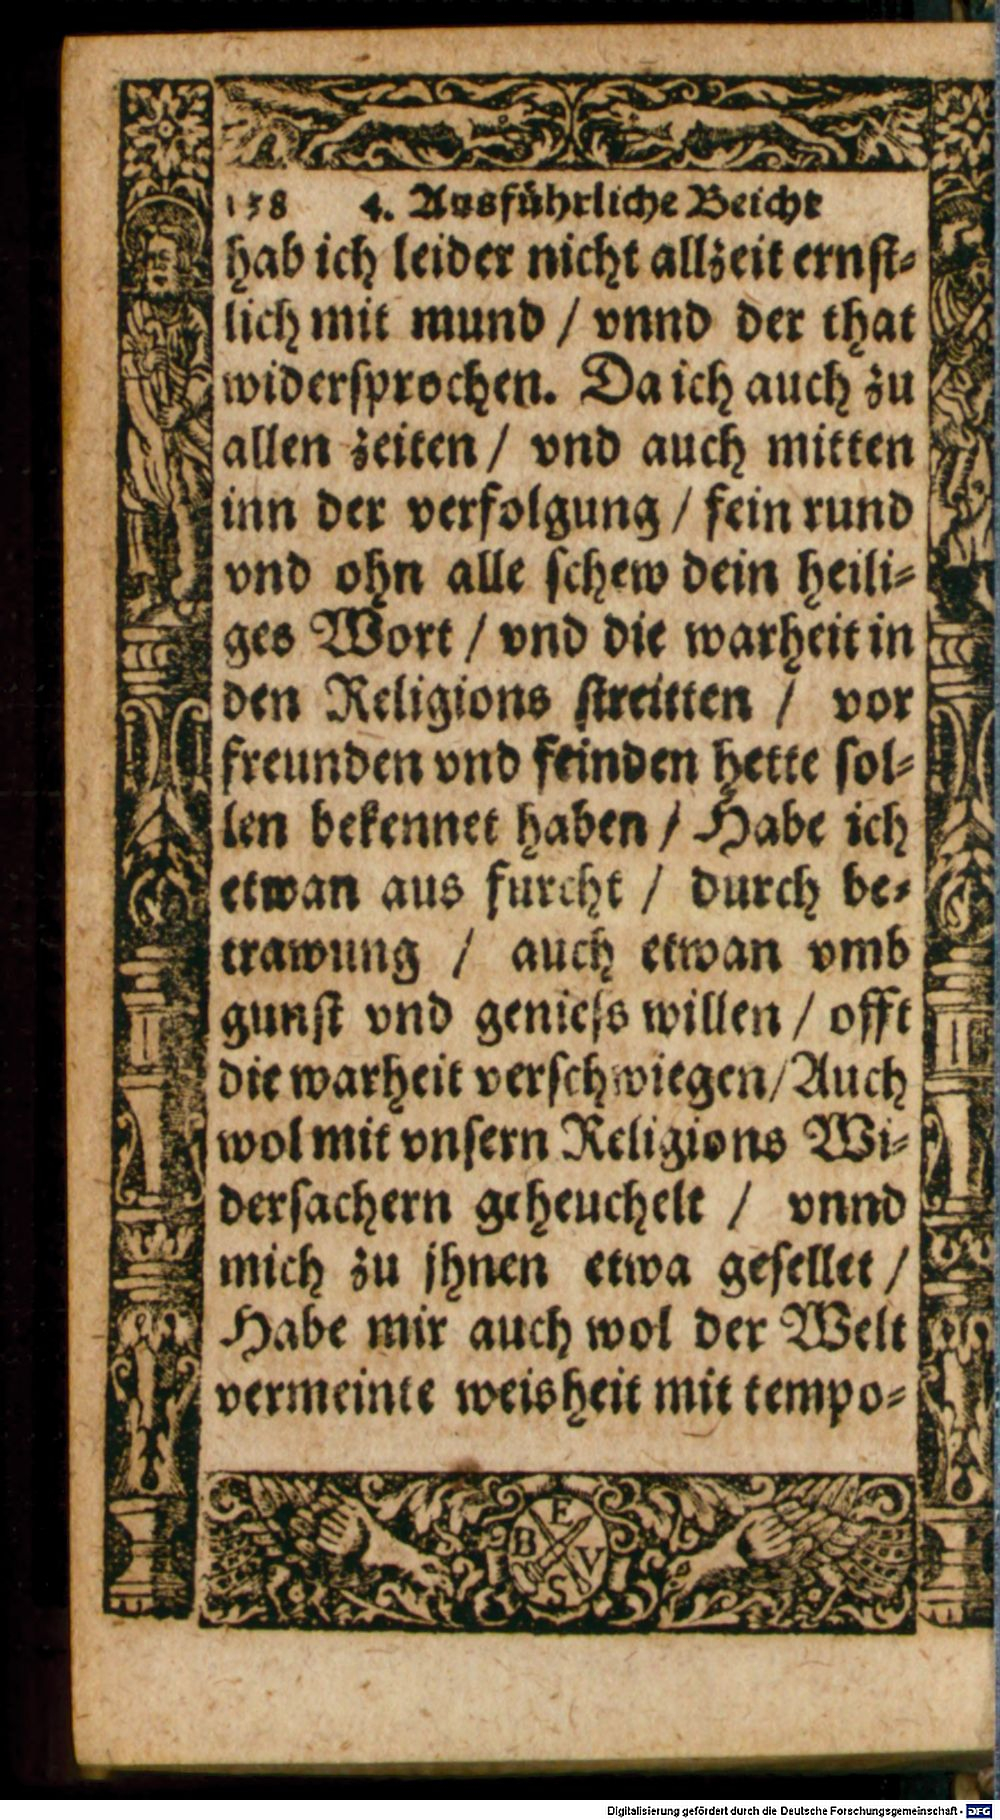 138 4. Ausführliche Beicht
hab ich leider nicht allzeit ernst-
lich mit mund / vnnd der that
widersprochen. Da ich auch zu
allen zeiten / vnd auch mitten
inn der verfolgung / fein rund
vnd ohn alle schew dein heili-
ges Wort / vnd die warheit in
den Religions streitten / vor
freunden vnd feinden hette sol-
len bekennet haben / Habe ich
etwan aus furcht / durch be-
trawung / auch etwan vmb
gunst vnd geniess willen / offt
die warheit verschwiegen / Auch
wol mit vnsern Religions Wi-
dersachern geheuchelt / vnnd
mich zu jhnen etwa gesellet /
Habe mir auch wol der Welt
vermeinte weisheit mit tempo-
E
B V
S
Digitalisierung gefördert durch die Deutsche Forschungsgemeinschaft - DFG